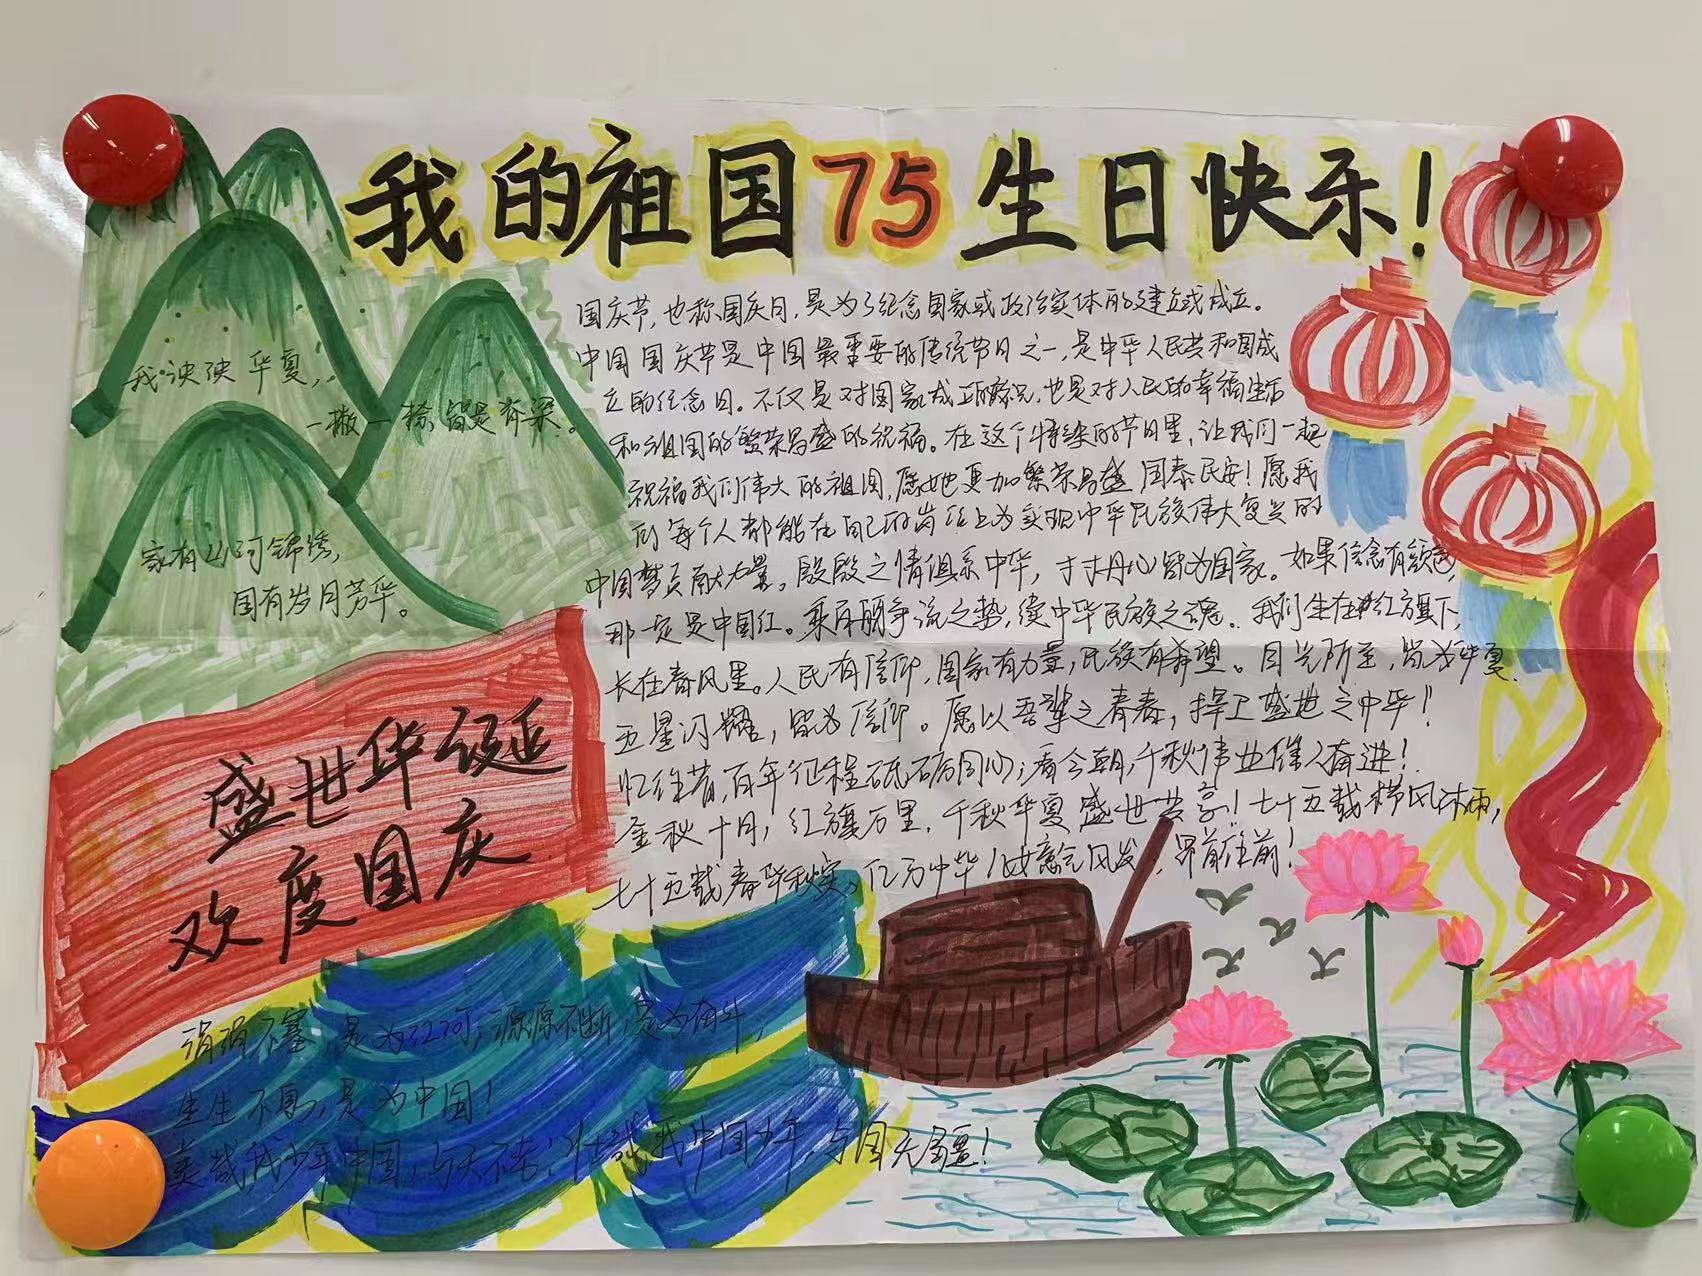 我的祖国75生日快乐！
国庆节，也称国庆日，是为了纪念国家或政治实体的建立或成立。
中国国庆节是中国最重要的传统节日之一，是中华人民共和国成
立的纪念日。不仅是对国家成立的庆祝，也是对人民的幸福生活
和祖国的繁荣昌盛的祝福。在这个特殊的节日里，让我们一起
祝福我们伟大的祖国，愿她更加繁荣昌盛 国泰民安！愿我
们每个人都能在自己的岗位上为实现中华民族伟大复兴的
中国梦贡献力量。殷殷之情俱系中华，寸寸丹心皆为国家。如果信念有颜色，
那一定是中国红。乘百舸争流之势，续中华民族之魂。我们生在红旗下，
长在春风里。人民有信仰，国家有力量，民族有希望。目光所至，皆为华夏，
五星闪耀，皆为信仰。愿以吾辈之青春，捍卫盛世之中华！
忆往昔，百年征程砥砺同心；看今朝，千秋伟业催人奋进！
金秋十月，红旗万里，千秋华夏盛世共享！七十五载栉风沐雨，
七十五载春华秋实。亿万中华儿女意气风发，昂首往前！
我泱泱华夏，
一撇一捺皆是脊梁。
家有山河锦绣，
国有岁月芳华。
盛世华诞
欢度国庆
涓涓不塞，是为江河；源源不断，是为奋斗，
生生不息，是为中国！
美哉，我少年中国，与天不老；壮哉，我中国少年，与国无疆！